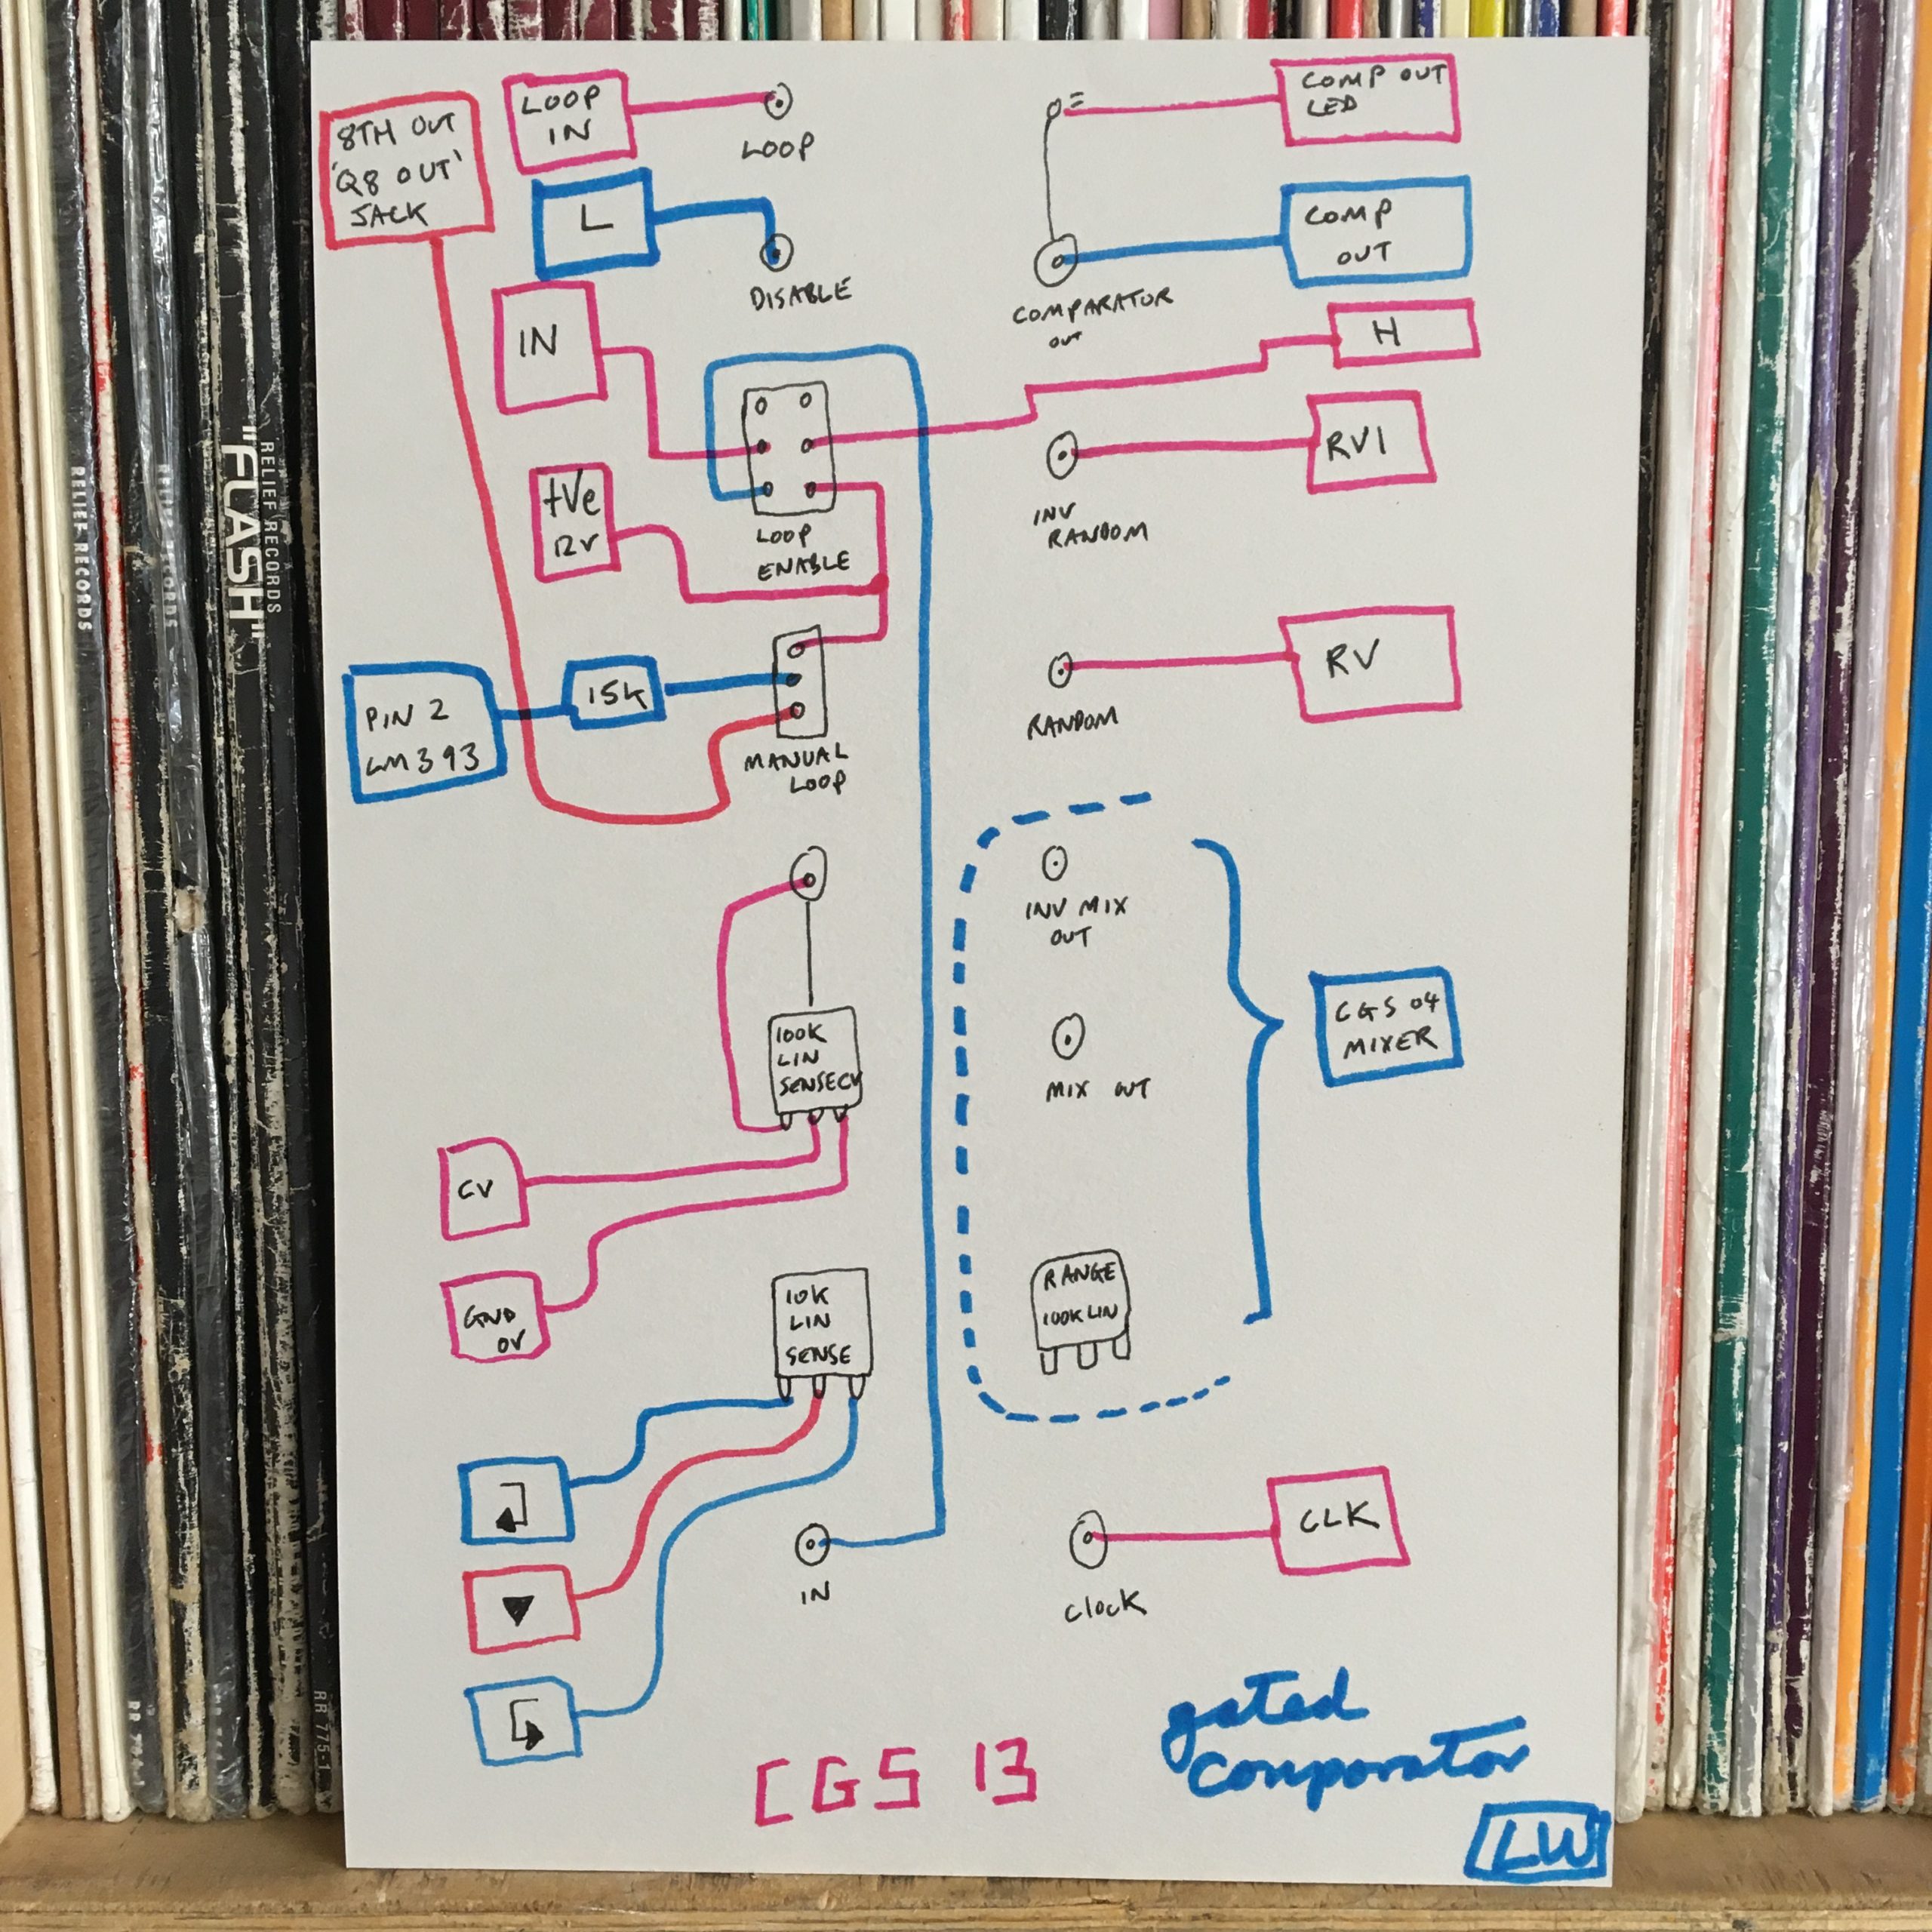 8TH OUT
'Q8 OUT'
JACK
LOOP
IN
LOOP
COMP OUT
LED
L
DISABLE
COMP
OUT
COMPARATOR
OUT
IN
H
LOOP
ENABLE
+Ve
12V
RV1
INV
RANDOM
PIN 2
LM393
15K
MANUAL
LOOP
RV
RANDOM
INV MIX
OUT
MIX OUT
CGS 04
MIXER
100K
LIN
SENSECV
CV
GND
0V
10K
LIN
SENSE
RANGE
100K LIN
IN
CLK
CLOCK
CGS 13
gated
comporator
LW
RELIEF RECORDS
RELIEF RECORDS
"FLASH"
RELIEF RECORDS
RR 775-1